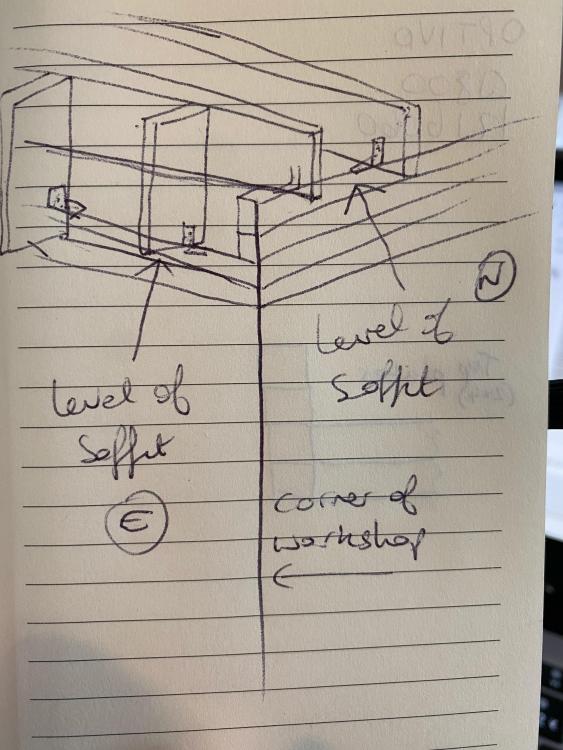 N
Level of
Soffit
Level of
Soffit
E
corner of
workshop